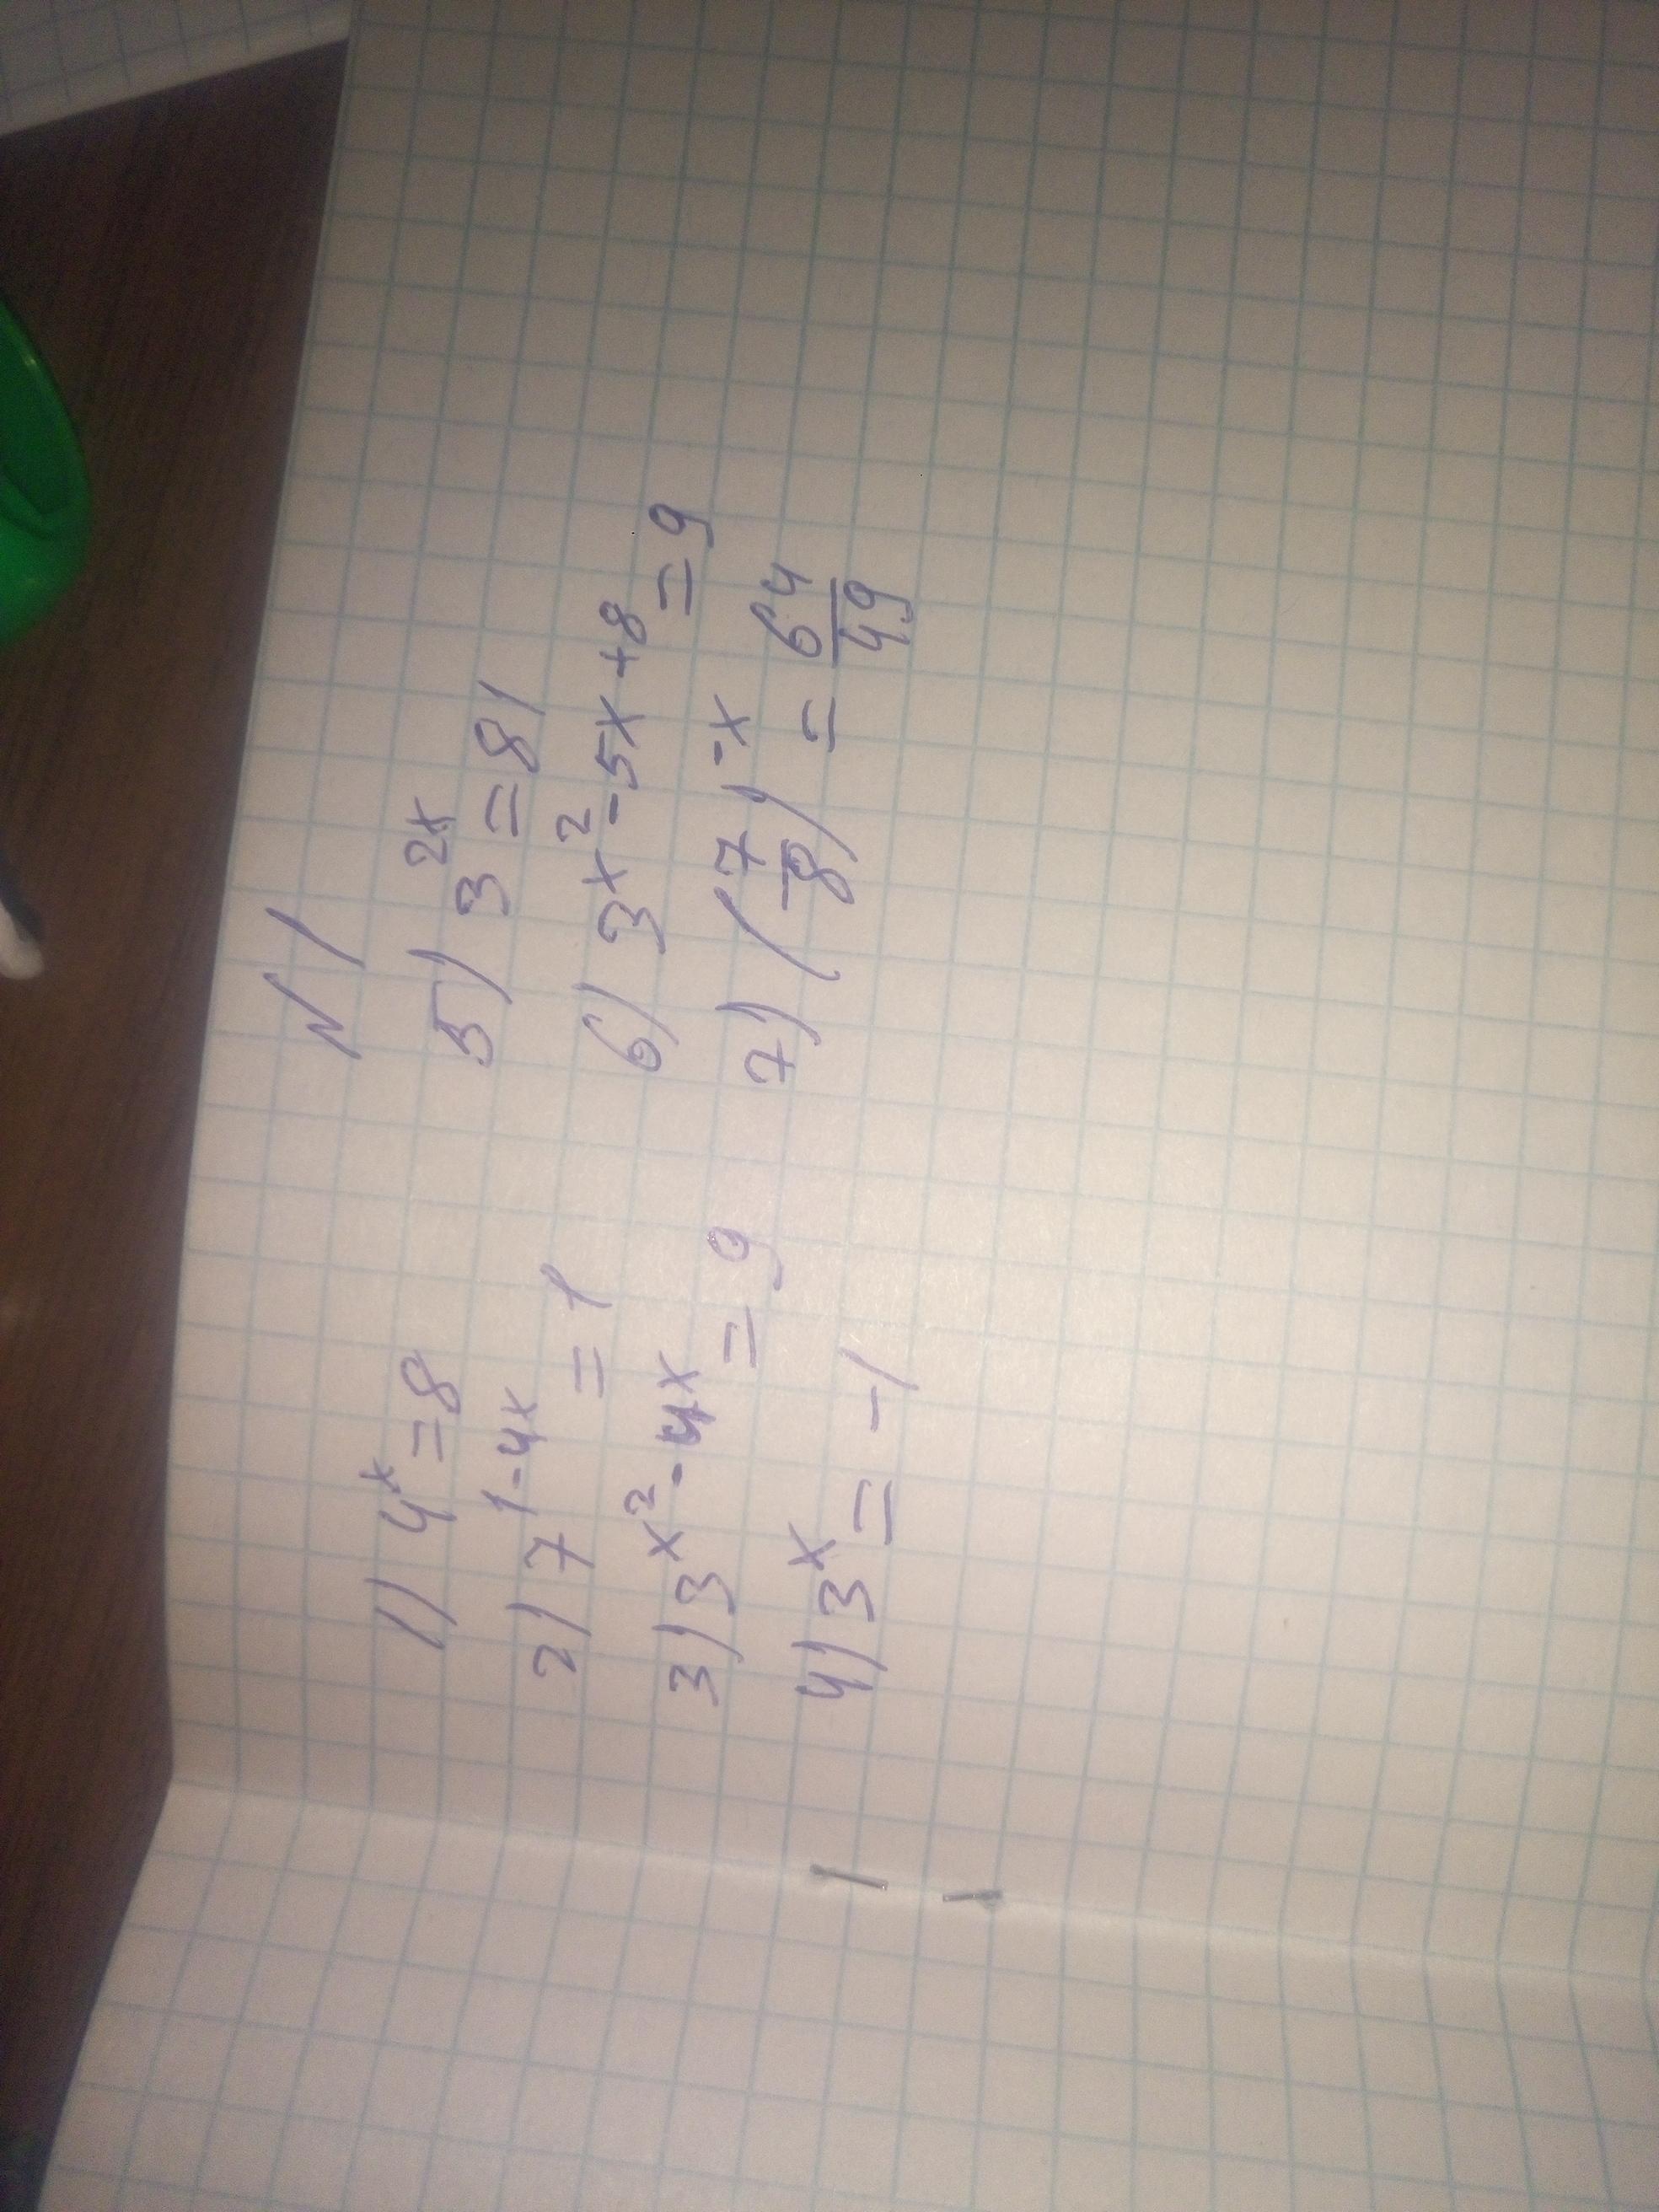 N1
1) 4ˣ = 8
2) 7¹⁻⁴ˣ = 1
3) 3^(x² - 4x) = 9
4) 3ˣ = -1
5) 3²ˣ = 81
6) 3^(x² - 5x + 8) = 9
7) (7/8)⁻ˣ = 64/49